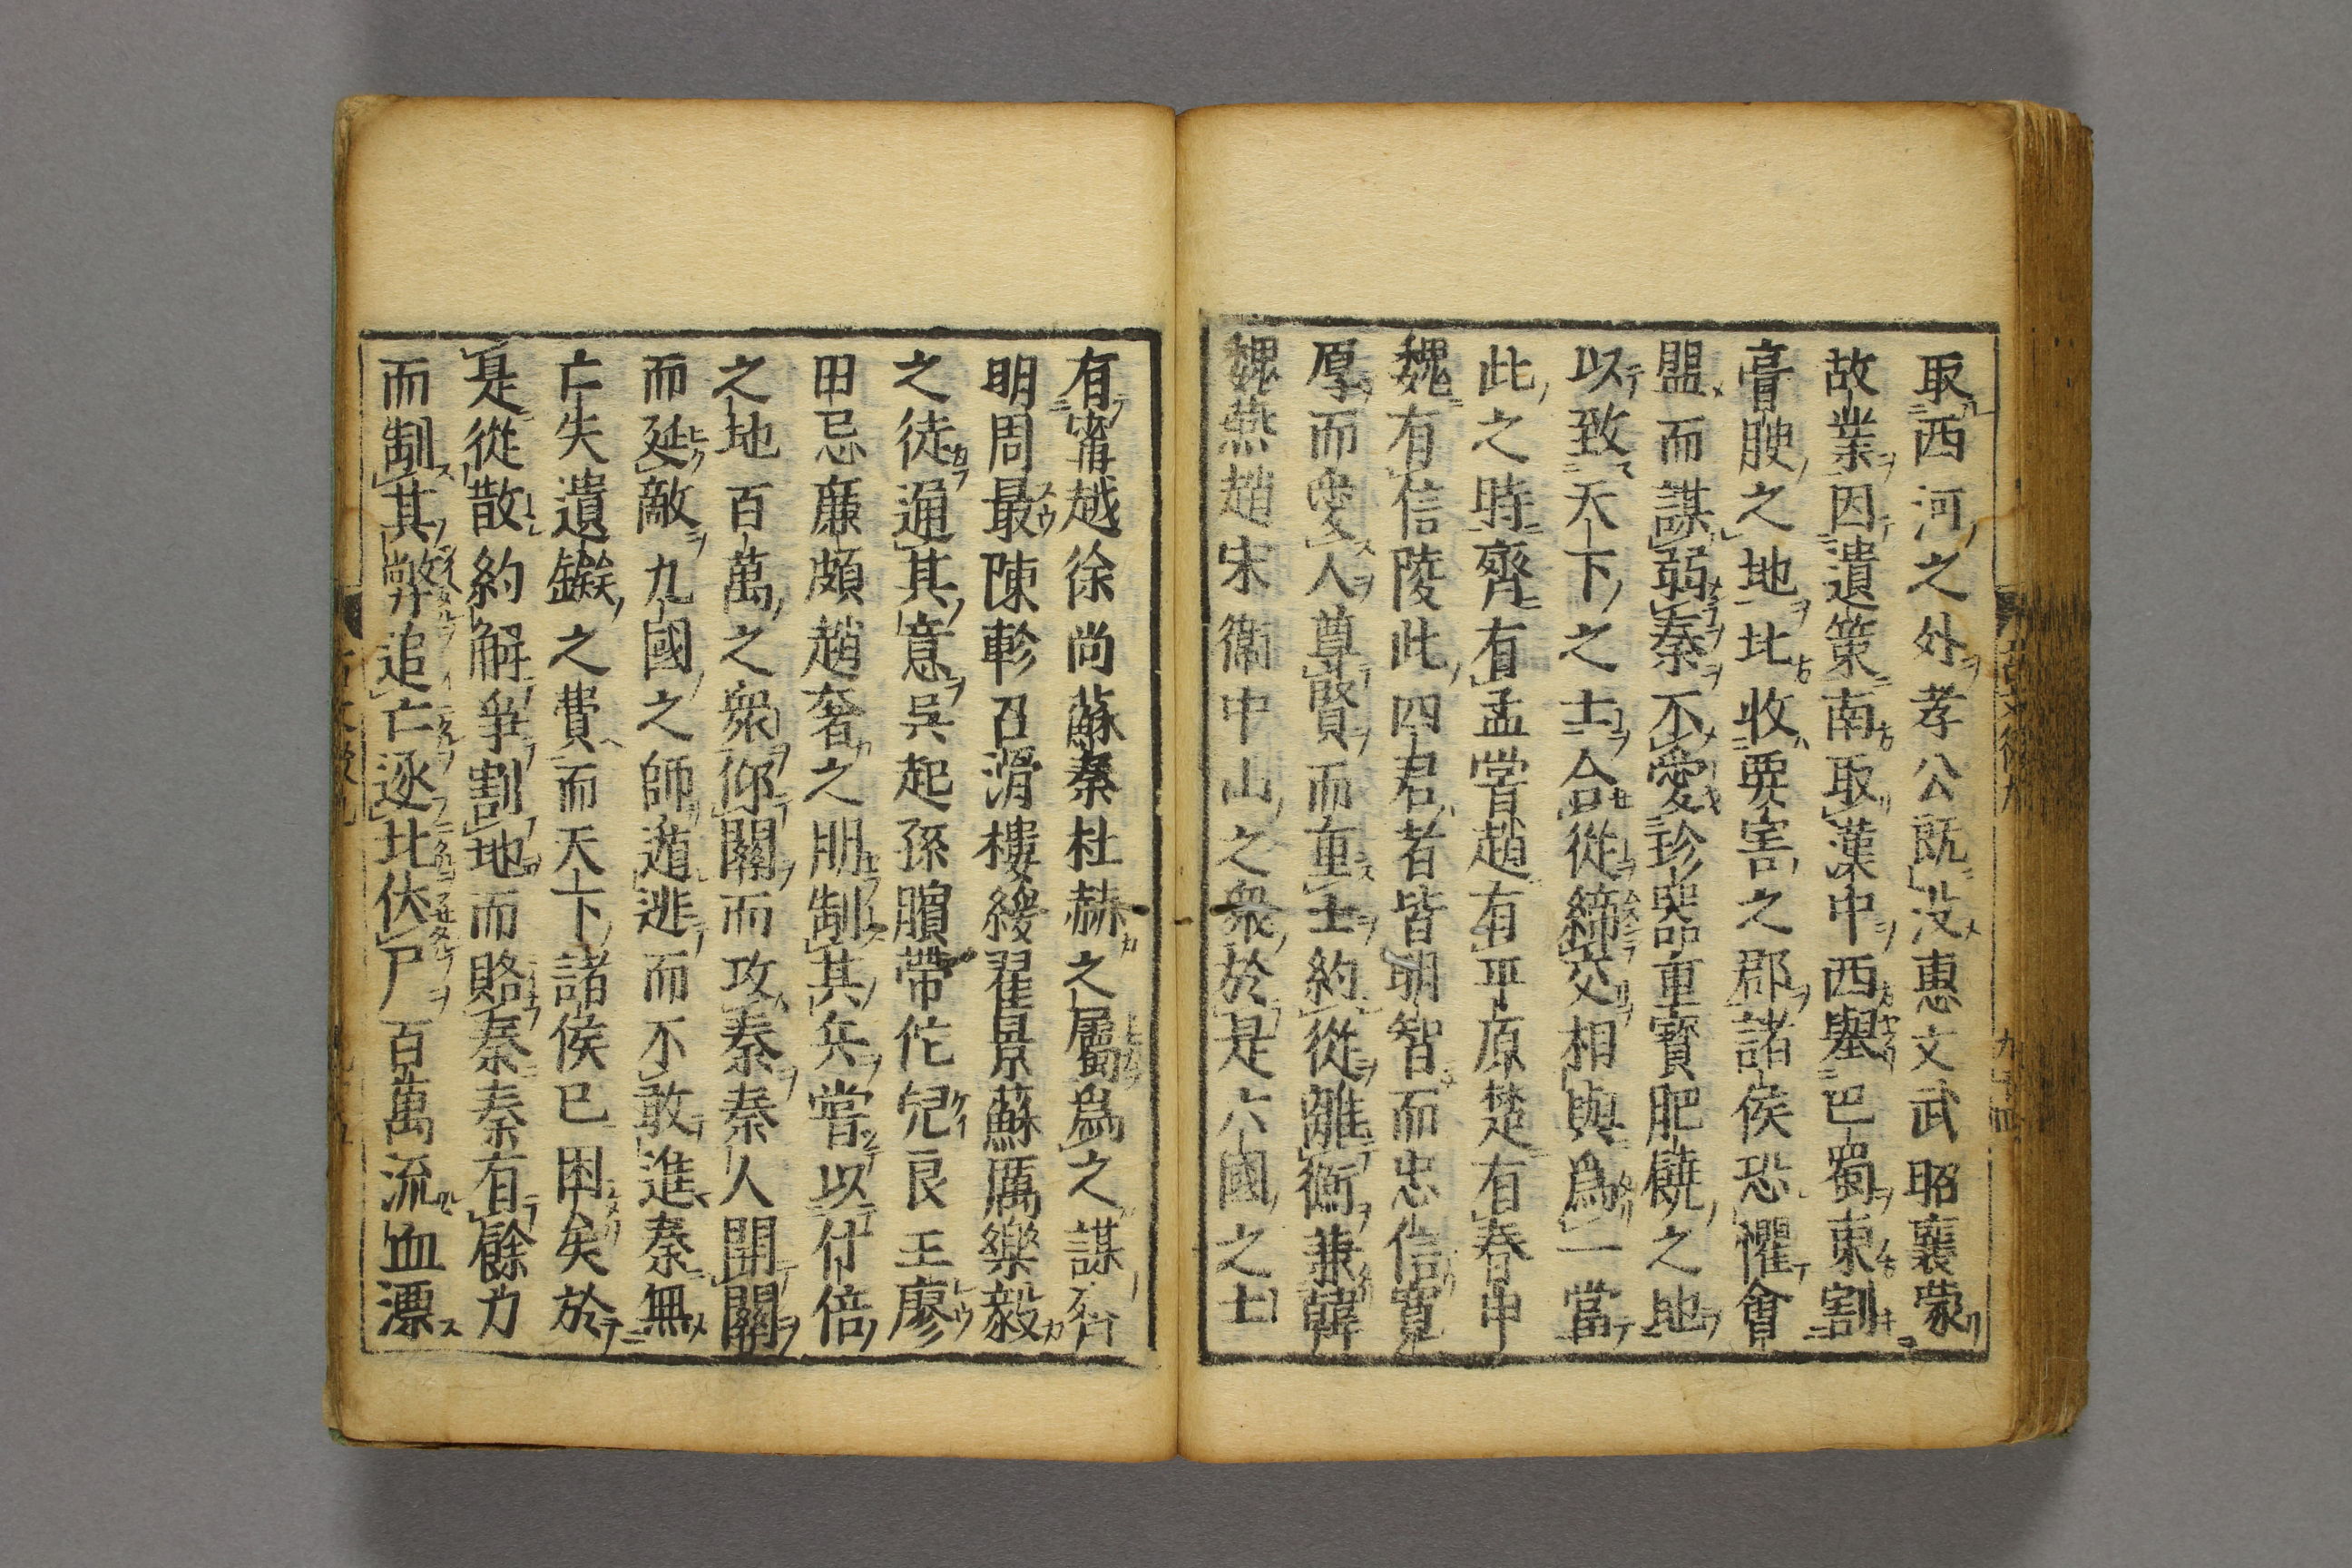 取西河之外孝公既没惠文武昭襄蒙
故業因遺策南取漢中西舉巴蜀東割
膏腴之地北收要害之郡諸侯恐懼會
盟而謀弱秦不愛珍器重寳肥饒之地
以致天下之士合從締交相與爲一當
此之時齊有孟嘗趙有平原楚有春申
魏有信陵此四君者皆明智而忠信寛
厚而愛人尊賢而重士約從離衡兼韓
魏燕趙宋衛中山之衆於是六國之士
有甯越徐尚蘇秦杜赫之屬爲之謀齊
明周最陳軫召滑樓緩翟景蘇厲樂毅
之徒通其意呉起孫臏帶佗兒良王廖
田忌廉頗趙奢之朋制其兵嘗以什倍
之地百萬之衆仰關而攻秦秦人開關
而延敵九國之師遁逃而不敢進秦無
亡矢遺鏃之費而天下諸侯已困矣於
是從散約解爭割地而賂秦秦有餘力
而制其弊追亡逐北伏尸百萬流血漂